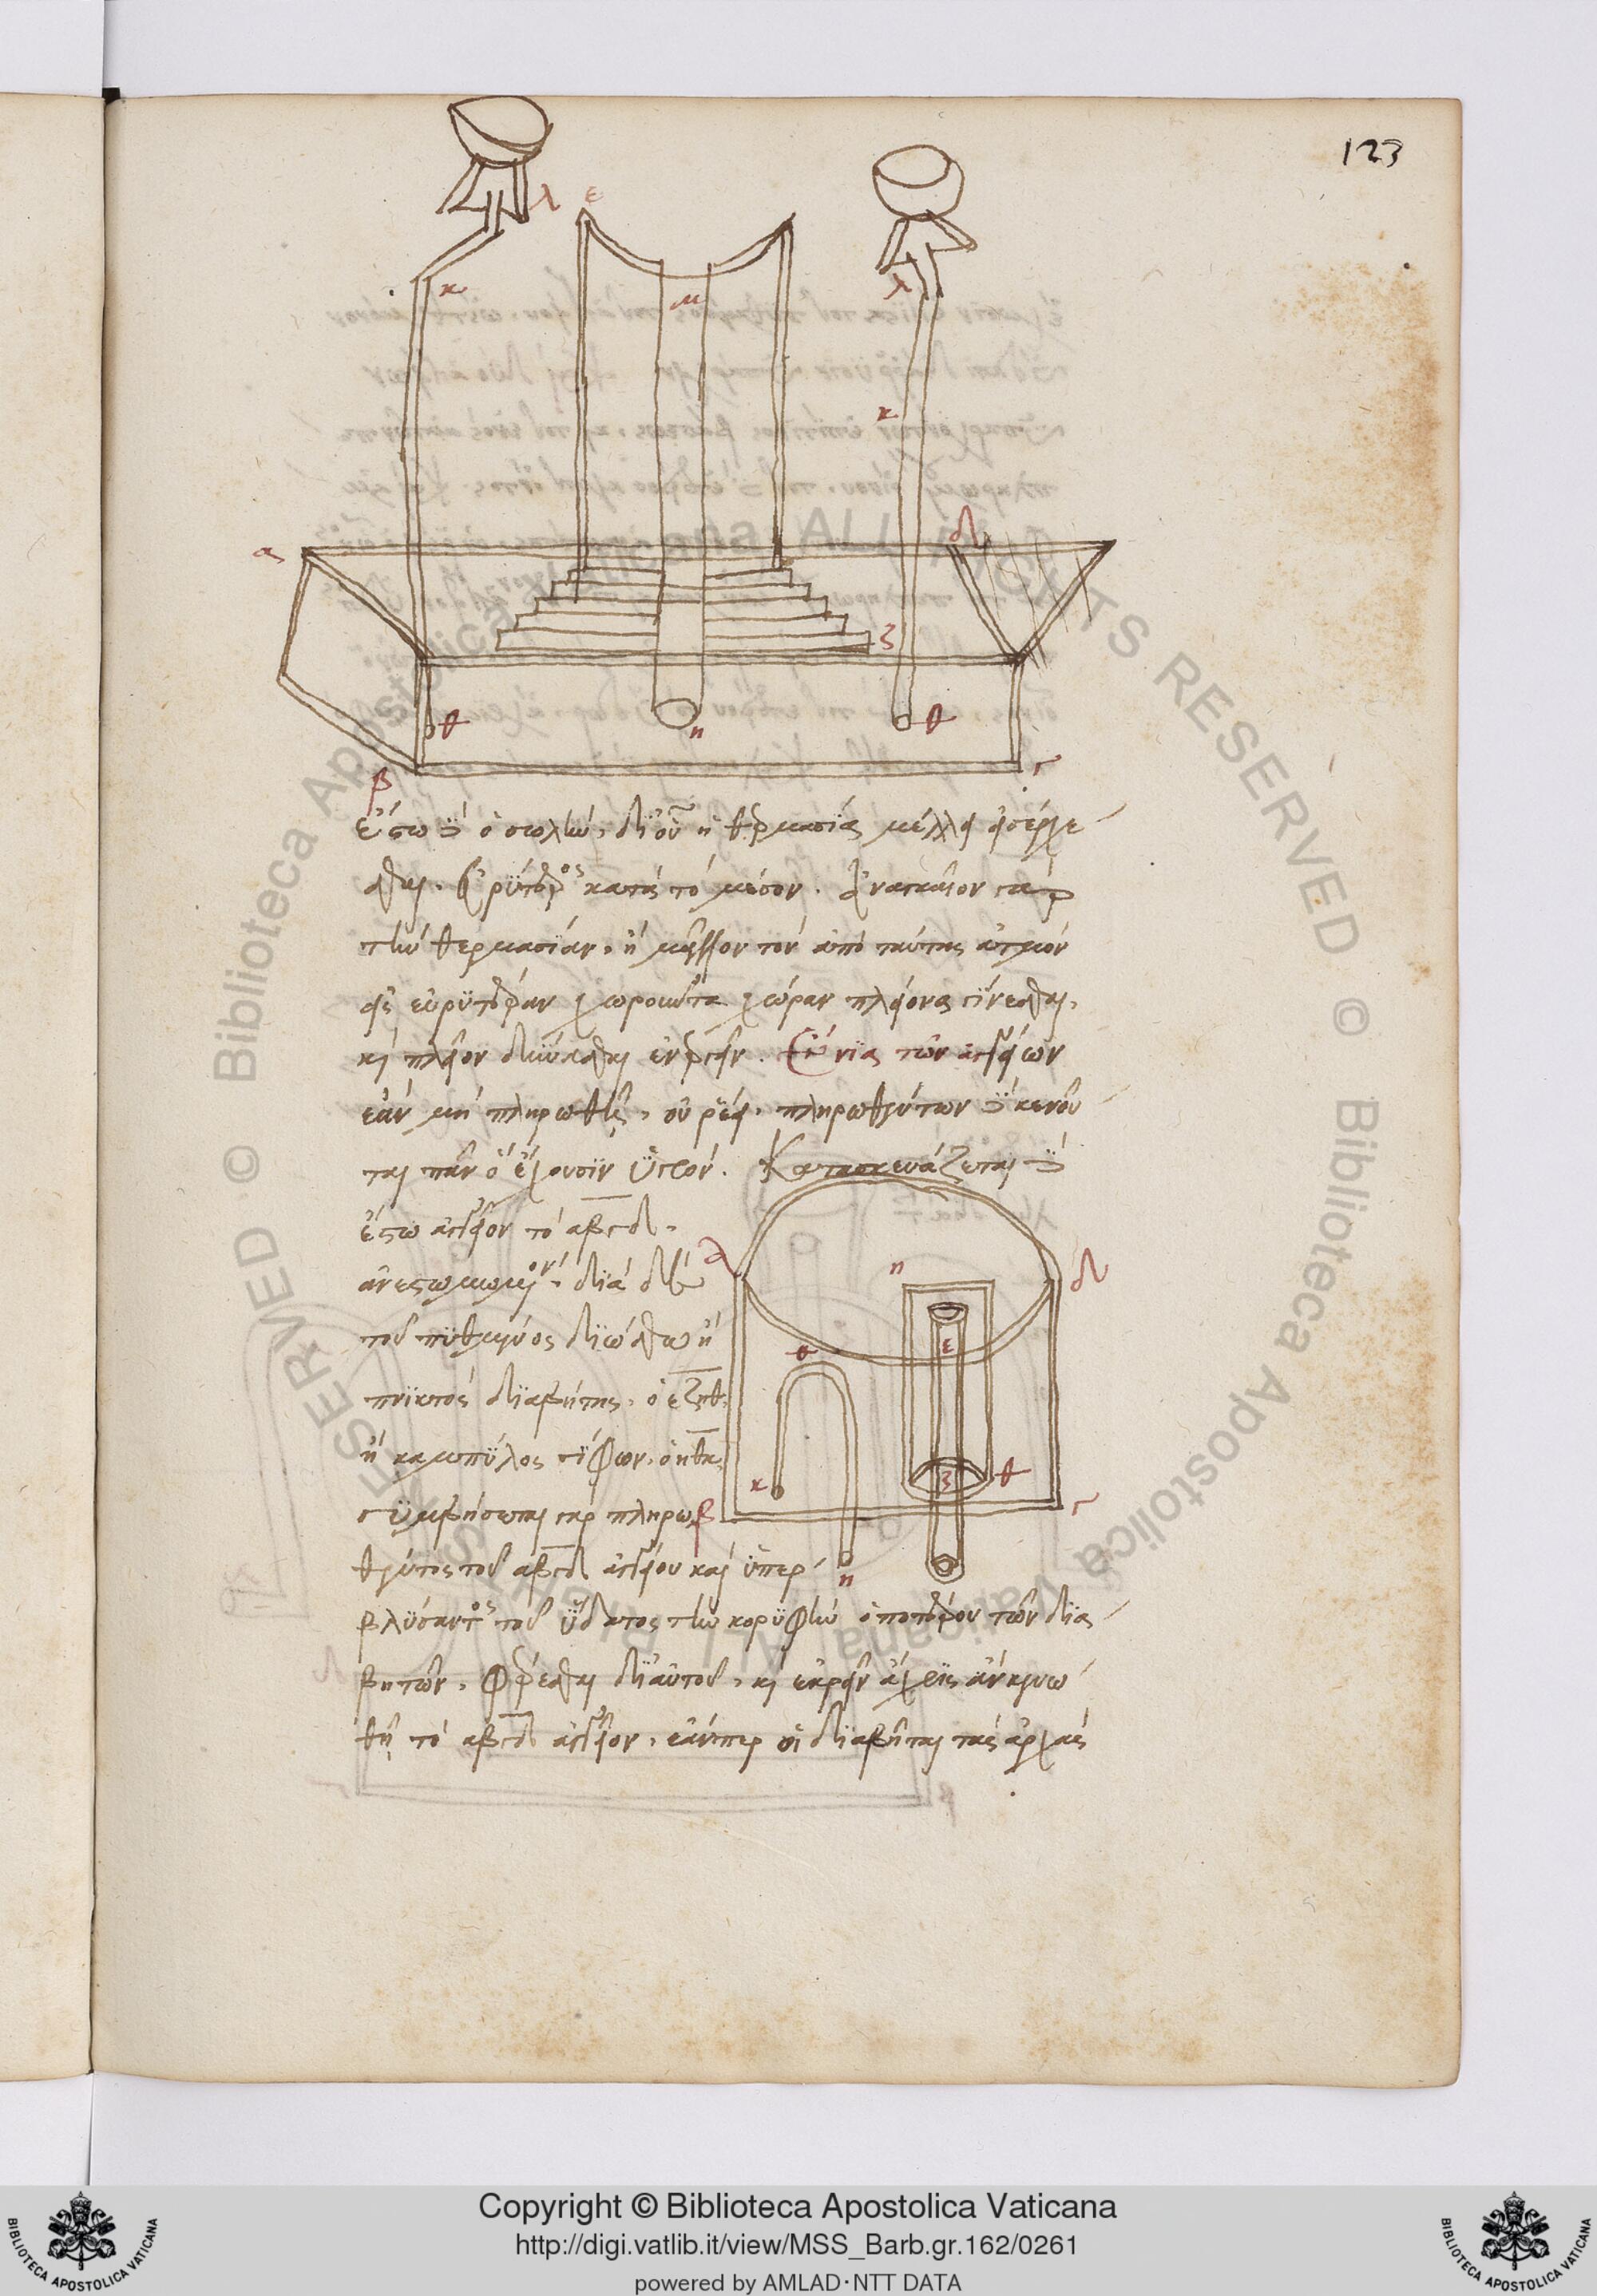 123
λ ε
κ μ λ
κ
α δ
ζ
θ η θ
β γ
ἔστω δὲ ὁ σωλὴν, δι' οὗ ἡ θερμασία μέλλει εἰσέρχε
σθαι. εὐρύτερος κατὰ τὸ μέσον. Ἀναγκαῖον γὰρ
τὴν θερμασίαν, ἢ μᾶλλον τὸν ἀπὸ ταύτης ἀτμὸν
εἰς εὐρυτέραν χωροῦντα χώραν πλείονα γίνεσθαι,
καὶ πλεῖον δύνασθαι ἐνεργεῖν. Ἔνια τῶν ἀγγείων
ἐὰν μὴ πληρωθῇ, οὐ ῥέει. πληρωθέντων δὲ κενοῦ
ται πᾶν ὃ ἔχουσιν ὑγρόν. Κατασκευάζεται δὲ
ἔστω ἀγγεῖον τὸ αβγδ.
ἀνεστωμωμένον. διὰ δὲ
τοῦ πυθμένος διώσθω ἢ
πνικτὸς διαβήτης, ὁ εζηθ.
ἢ καμπύλος σίφων, ὁ ηθκ.
συμβήσεται γὰρ πληρω
θέντος τοῦ αβγδ ἀγγείου καὶ ὑπερ
βλύσαντος τοῦ ὕδατος τὴν κορυφὴν ὁποτέρου τῶν δια
βητῶν. φέρεσθαι δι' αὐτοῦ, καὶ ἐκρεῖν ἄχρις ἂν κενω
θῇ τὸ αβγδ ἀγγεῖον, ἐάνπερ οἱ διαβῆται τὰς ἀρχὰς
α η δ
θ ε
κ ζ θ
β γ
η
Copyright © Biblioteca Apostolica Vaticana
http://digi.vatlib.it/view/MSS_Barb.gr.162/0261
powered by AMLAD·NTT DATA
BIBLIOTECA APOSTOLICA VATICANA
BIBLIOTECA APOSTOLICA VATICANA